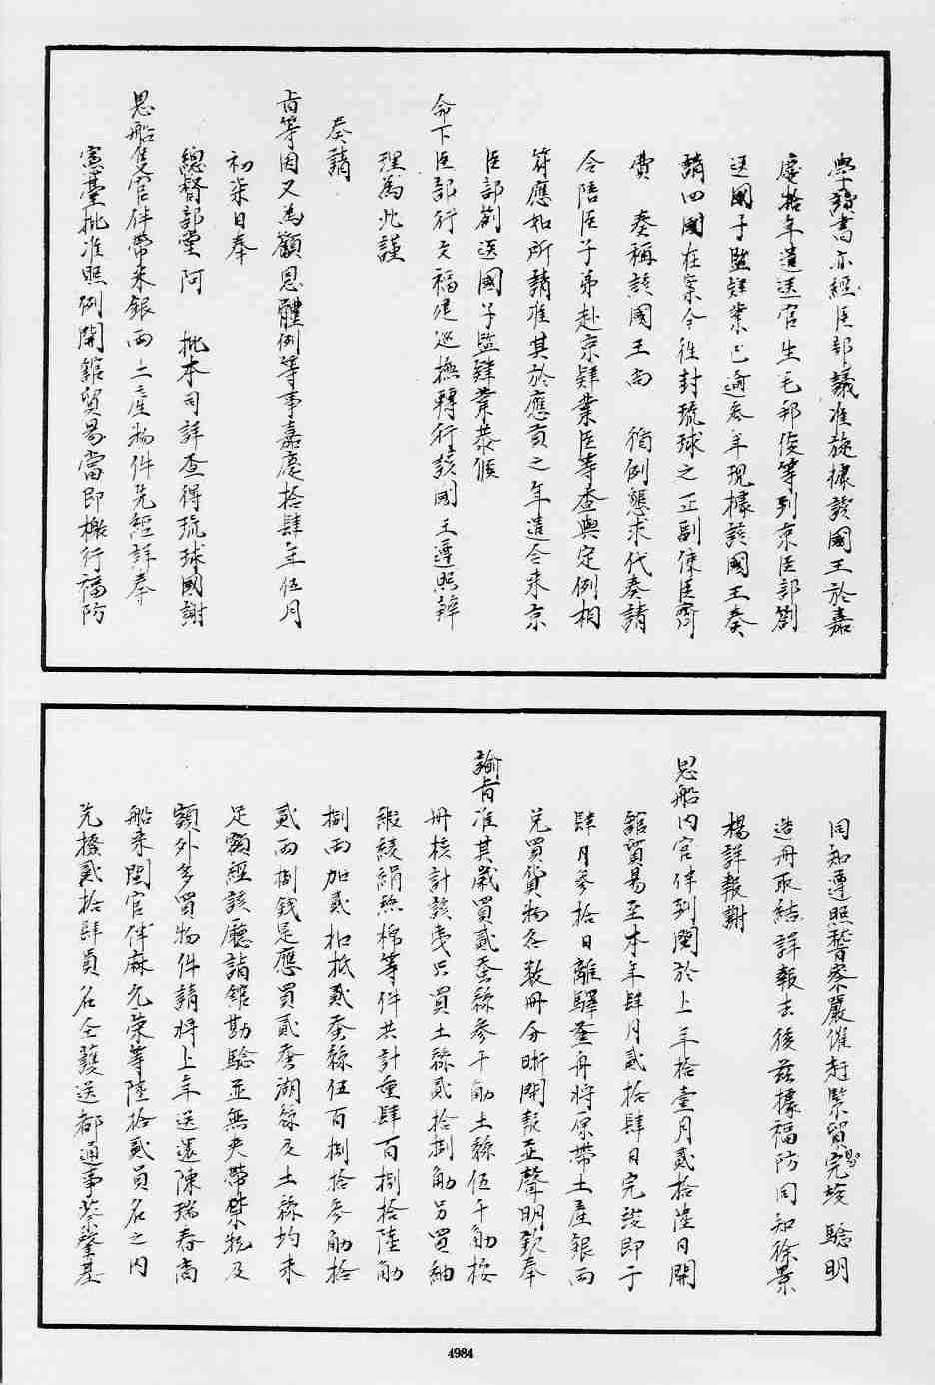 學讀書亦經臣部議准旋據該國王於嘉
慶拾年遣送官生毛邦俊等到京臣部劄
送國子監肄業已逾叁年現據該國王奏
請回國在案今徃封琉球之正副使臣齊
費 奏稱該國王尚 循例懇求代奏請
令陪臣子弟赴京肄業臣等查與定例相
符應如所請准其於應貢之年遣令來京
臣部劄送國子監肄業恭候
命下臣部行文福建巡撫轉行該國王遵照辦
理爲此謹
奏請
旨等因又為籲恩體例等事嘉慶拾肆年伍月
初柒日奉
總督部堂阿 批本司詳查得琉球國謝
恩船隻官伴帶来銀兩土產物件先經詳奉
憲臺批准照例開舘貿易當即檄行福防
同知遵照督察嚴催赶緊貿易完竣驗明
造册取結詳報去後茲據福防同知徐景
楊詳報謝
恩船内官伴到閩於上年拾壹月貳拾陸日開
舘貿易至本年肆月貳拾肆日完竣即于
肆月叁拾日離驛登舟將原帶土產銀兩
兌買貨物各數册分晰開報並聲明欽奉
諭旨准其歲買貳蚕絲叁千觔土絲伍千觔按
册核計該夷只買土絲貳拾捌觔另買紬
緞綾絹熟棉等件共計重肆百捌拾陸觔
捌兩加貳扣抵貳蚕絲伍百捌拾叁觔拾
貳兩捌錢是應買貳蚕湖絲及土絲均未
足額經該廳詣舘勘驗並無夾帶禁物及
額外多買物件請將上年送還陳瑞春商
船来閩官伴麻允榮等陸拾貳員名之内
先撥貳拾肆員名仝護送都通事蔡肇基